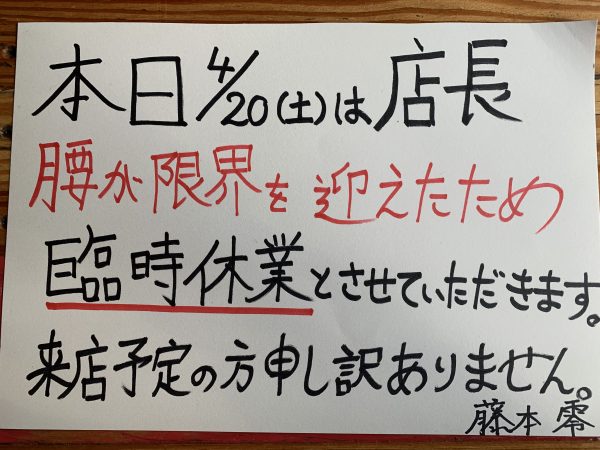 本日4/20(土)は店長
腰が限界を迎えたため
臨時休業とさせていただきます。
来店予定の方申し訳ありません。
藤本零